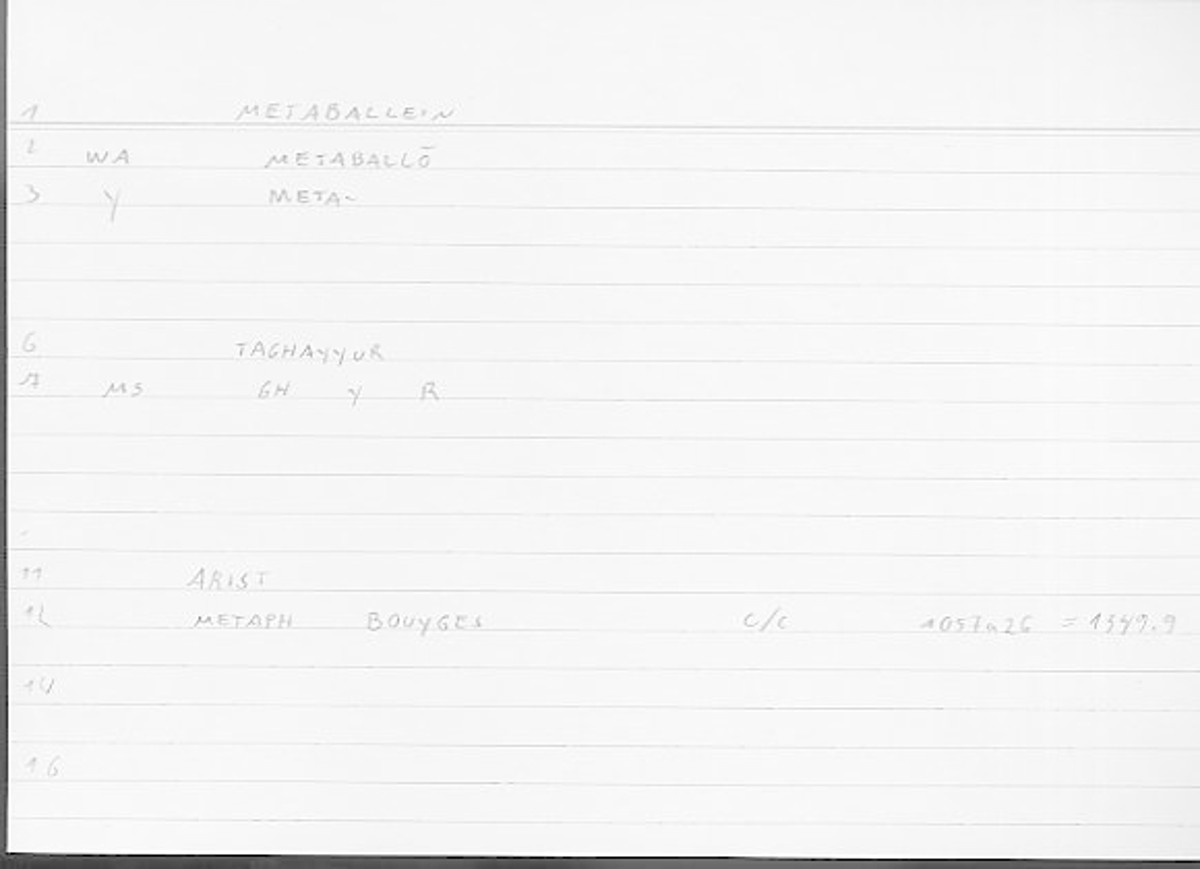 1 METABALLEIN
2 WA METABALLŌ
3 Y META~
6 TAGHAYYUR
7 MS GH Y R
11 ARIST
12 METAPH BOUYGES C/C 1057a26 = 1349.9
14
16